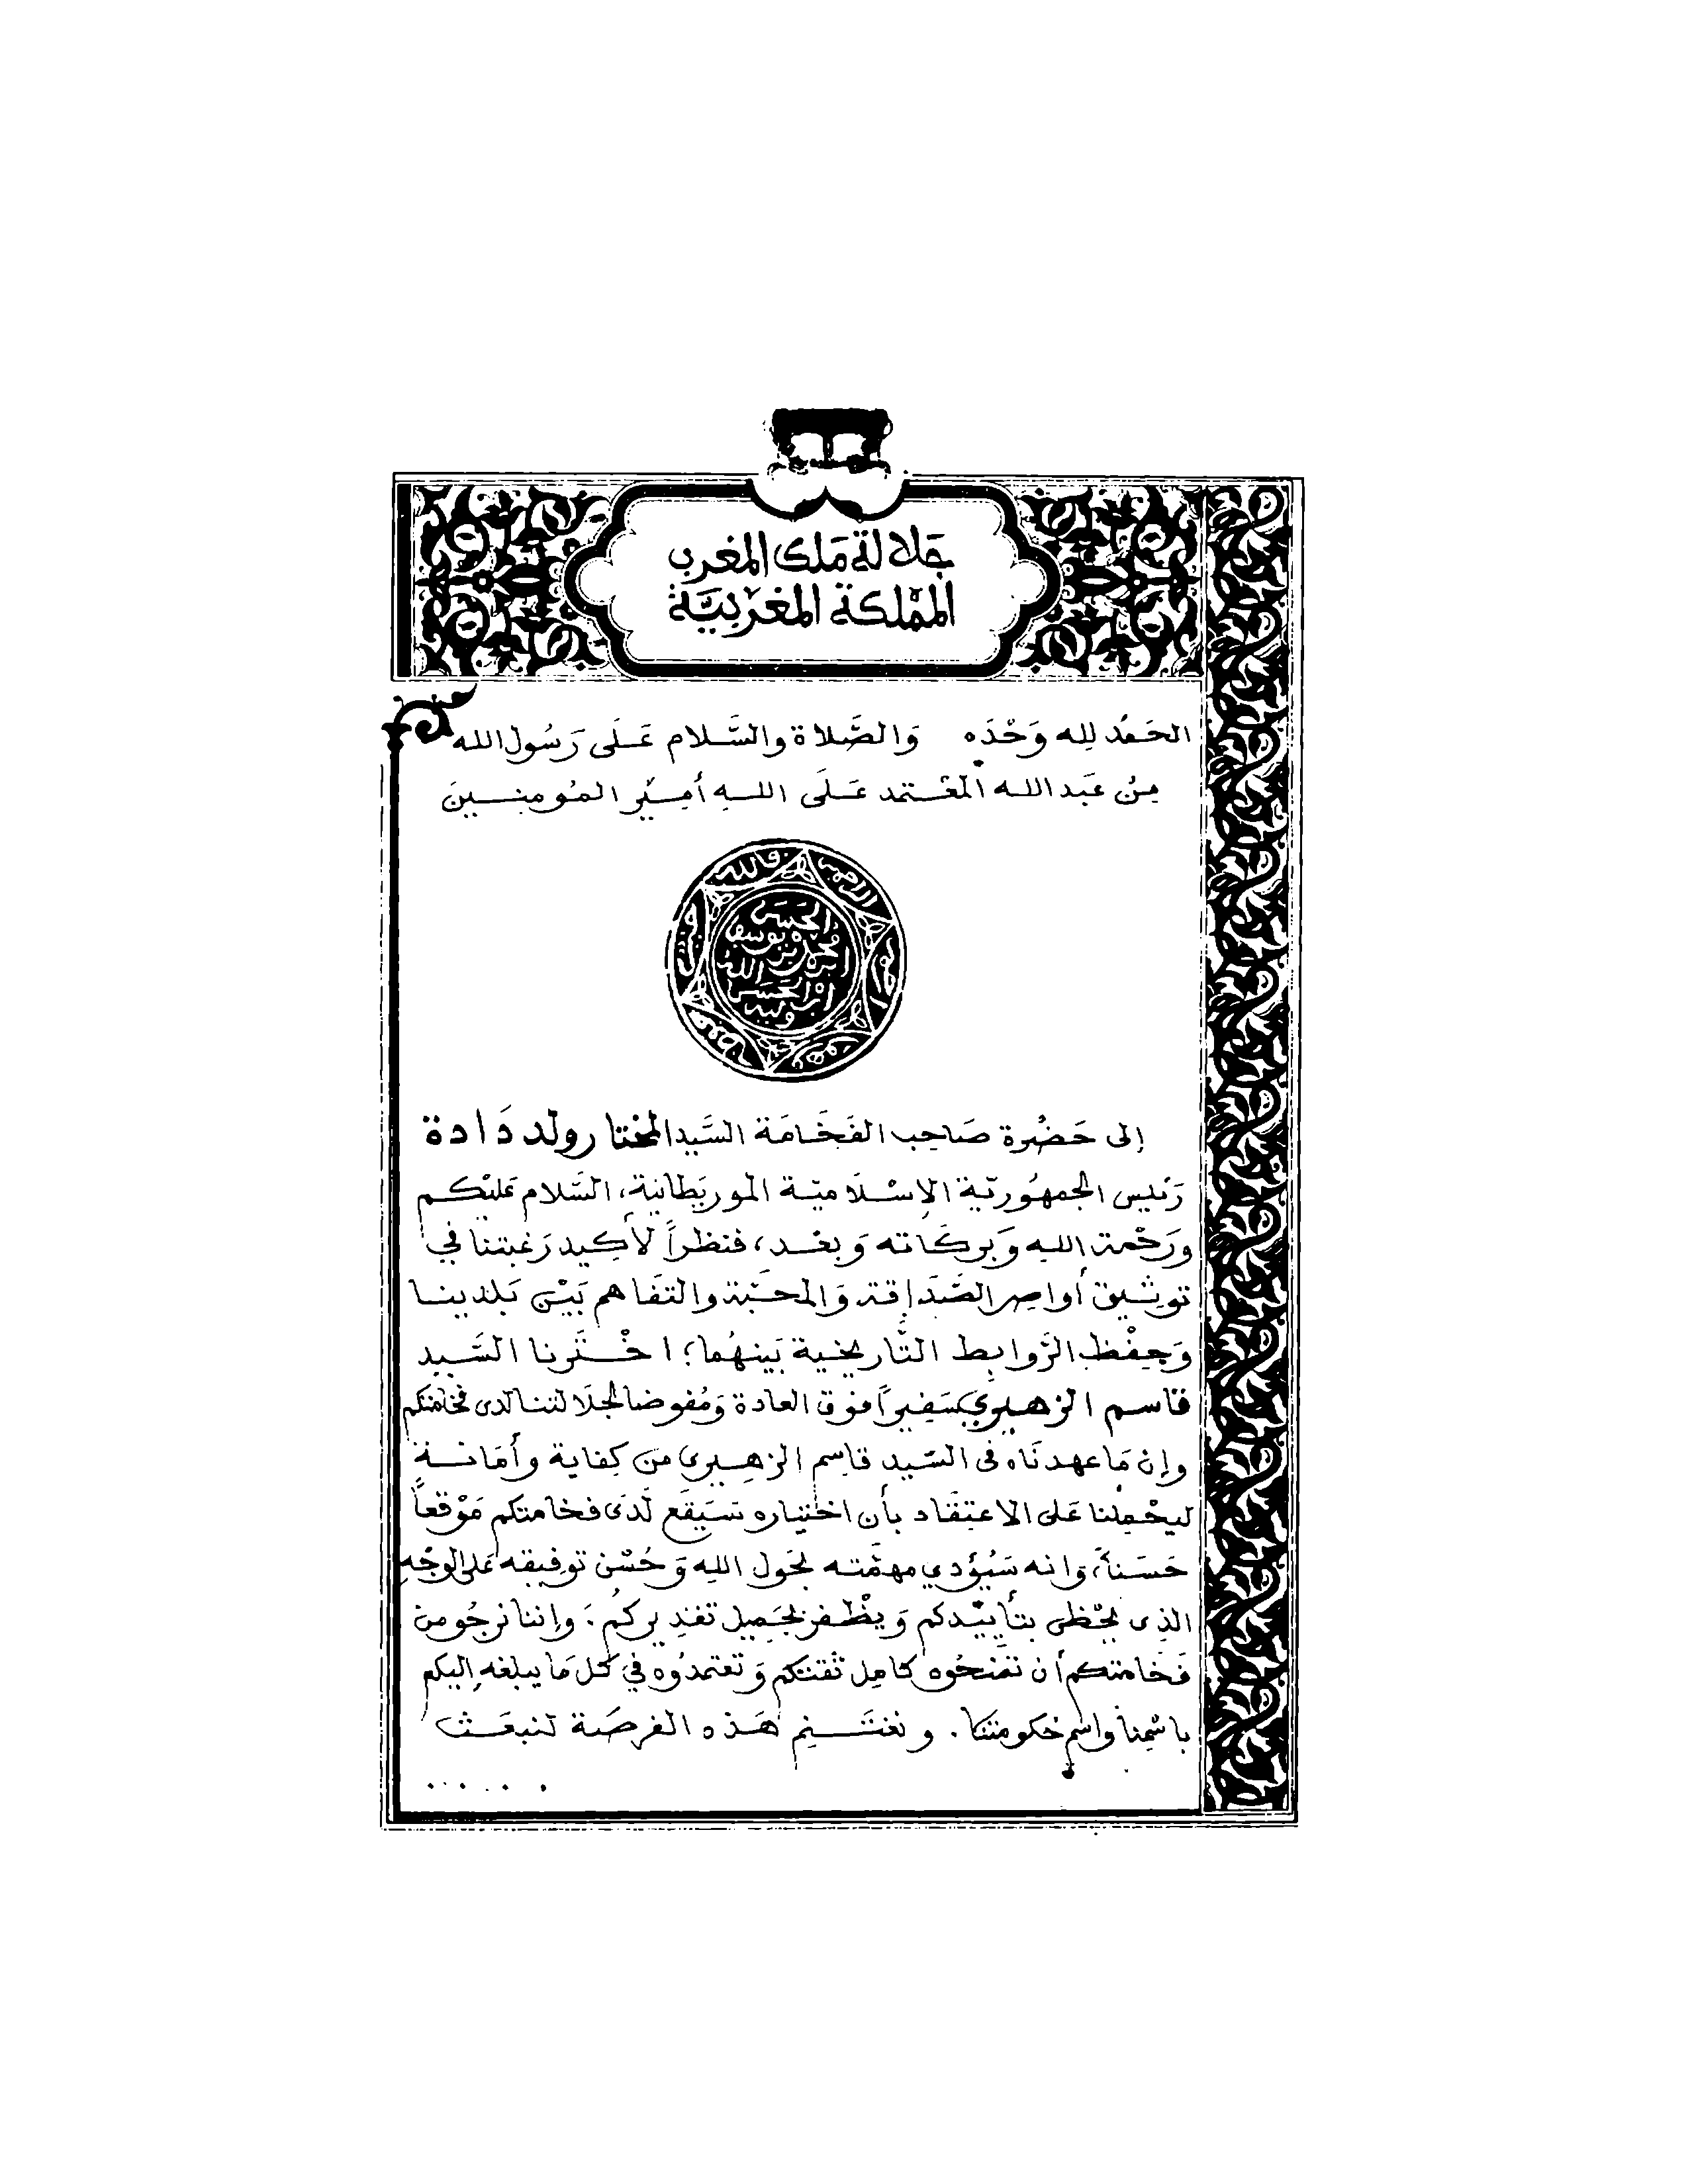 جَلَالَة مَلك المغرب
المَمْلكة المغرْبيَّة
الحَمْد لله وَحْدَه وَالصَّلاة والسَّلام عَلَى رَسُول الله
مِنْ عَبد الله المعْتمد عَلَى اللهِ أمِيْر المُومِنِينَ
الحسن
بن محمد بن يوسف
بن الحسن
الله وليه
إلى حَضْرة صَاحِب الفَخَامَة السَّيد المختار ولد دَادة
رَئيس الجمهُوريّة الإسْلَاميّة الموريَطانية، السَّلام عَليْكم
ورَحْمة الله وَبركَاته وَبعْد، فنظراً لأكِيد رَغبتنا في
توثيق أواصِر الصَّدَاقة وَالمحَبّة والتفَاهم بَيْن بَلدينا
وَحِفْظ الرَّوابط التَّاريخية بَينهُما؛ اخْتَرنا السَّيد
قاسم الزهيري سَفِيراً فوق العادة وَمُفوضا لجلَالتنا لدى فخامتكم
وإن مَا عهدنَاه في السّيد قاسِم الزهِيري مَن كِفاية وأمَانة
ليحْمِلنا عَلى الاعتِقاد بأن اختياره سَيَقع لَدَى فخامتكم مَوْقعاً
حَسَناً، وانه سَيُؤدي مهمَّته بحَول الله وَحُسْن توفِيقه عَلى الوجْهِ
الذِى يحْظى بتأييْدكم وَيظْفر بجَمِيل تقديركُم. وإننا نرجُو من
فَخامتكم أن تمنحُوه كامِل ثقتكم وَتعتمدُوه في كل مَا يبلغه إليكم
باسْمِنا واسْم حكومتنا. ونغتَنِم هَذه الفرصَة لنبعَث
.....